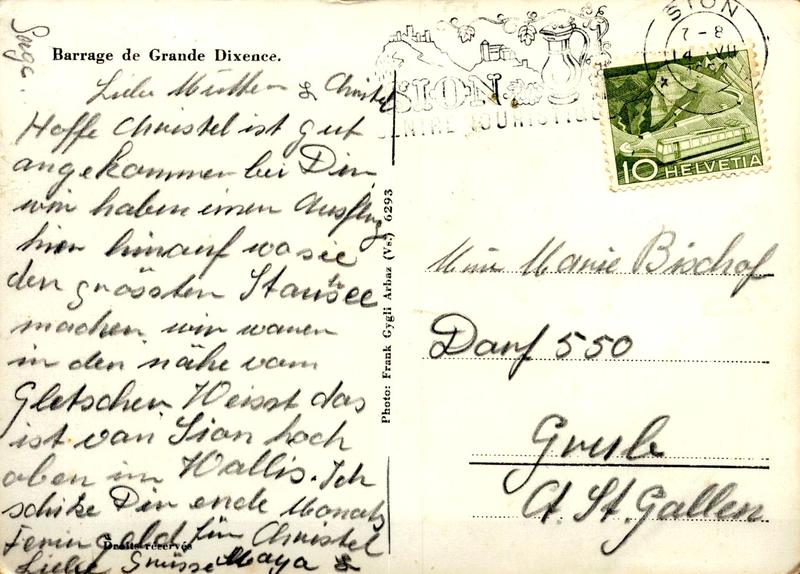 Barrage de Grande Dixence.
Liebe Mutter & Christel
Hoffe Christel ist gut
angekommen bei Dir
wir haben einen Ausflug
hier hinauf wo sie
den grössten Stausee
machen wir waren
in den nähe vom
Gletscher. Weisst das
ist von Sion hoch
oben im Wallis. Ich
schike Dir ende Monats
Ferin geld für Christel
Liebe Grüsse Maya &
Droits réservés
Photo: Frank Gygli Arbaz (Vs.) 6293
SION
CENTRE TOURISTIQUE
SION
7-8
14 VII
10 HELVETIA
Marie Bischof
Dorf 550
Grub
Ct. St. Gallen